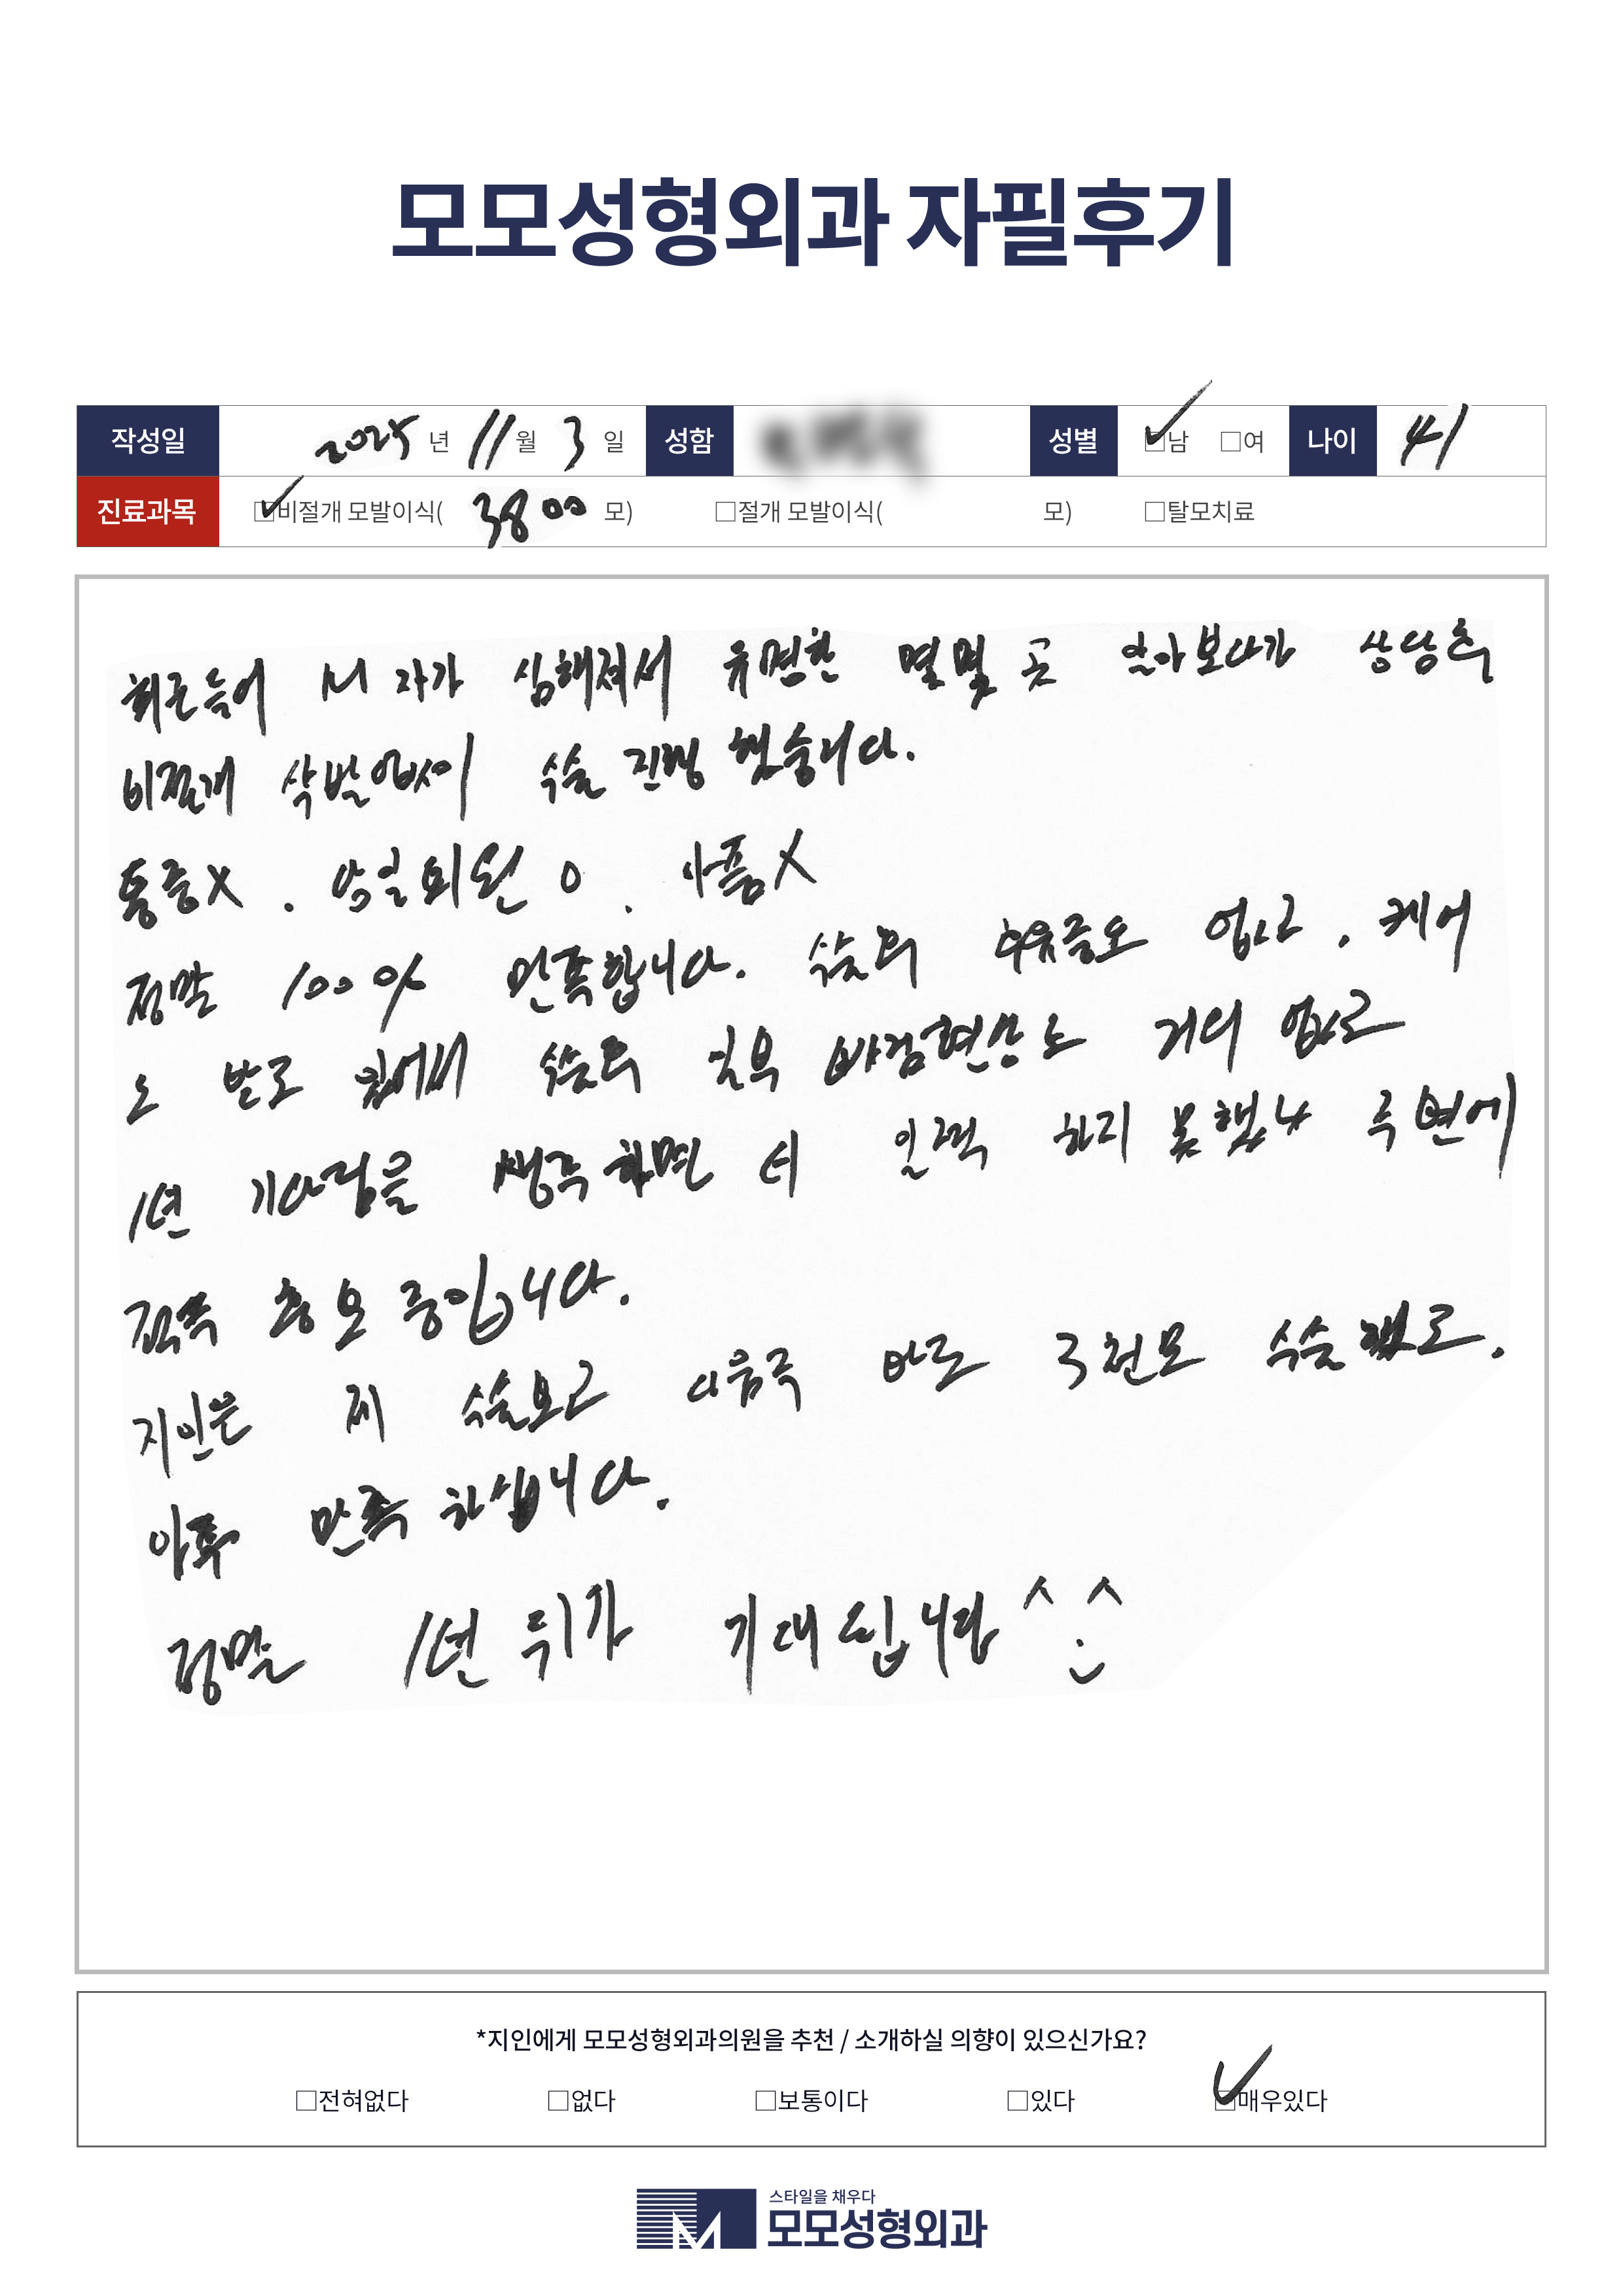 모모성형외과 자필후기
작성일 2025 년 11 월 3 일 성함 성별 □남 □여 나이 41
진료과목 □비절개 모발이식( 3800 모) □절개 모발이식( 모) □탈모치료
최근들어 M자가 심해져서 유명한 몇몇 곳 알아보다가 상담후
비절개 삭발없이 수술 진행 했습니다.
통증X . 당일퇴원 O . 아픔X
정말 100% 만족합니다. 수술후 후유증도 없고, 케어
도 받고 수술후 거의 없고
1년 기다림을 생각하면 더 일찍 하지 못했나 주변에
적극 홍보중입니다.
지인은 제 수술보고 다음주 바로 3천모 수술했고,
아주 만족하십니다.
정말 1년뒤가 기대됩니다 ^ ^
*지인에게 모모성형외과의원을 추천 / 소개하실 의향이 있으신가요?
□전혀없다 □없다 □보통이다 □있다 □매우있다
스타일을 채우다
모모성형외과